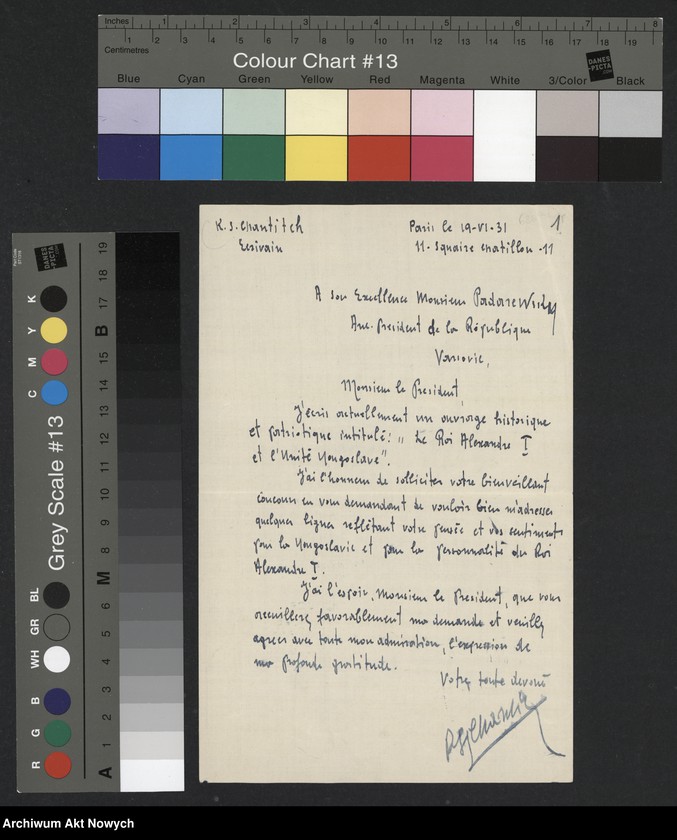 Inches 1 2 3 4 5 6 7 8
Centimetres 1 2 3 4 5 6 7 8 9 10 11 12 13 14 15 16 17 18 19
Colour Chart #13
DANES-PICTA.COM
Blue Cyan Green Yellow Red Magenta White 3/Color Black
Grey Scale #13
DANES-PICTA.COM
C M Y K
R G B WH GR BL
A 1 2 3 4 5 6 M 8 9 10 11 12 13 14 15 B 17 18 19
K. S. Chantitch
Ecrivain
Paris le 19-VI-31
1
11- Squaire Chatillon -11
A son Excellence Monsieur Padarewsky
Anc. President de la République
Varsovie,
Monsieur le President,
J'écris actuellement un ouvrage historique
et patriotique intitulé: „ Le Roi Alexandre I
et l'Unité Yougoslave".
J'ai l'honneur de solliciter votre bienveillant
concour en vous demandant de vouloir bien m'adresser
quelques lignes reflétant votre pensée et vos sentiments
pour la Yougoslavie et pour la personnalité du Roi
Alexandre I.
J'ai l'espoir, Monsieur le President, que vous
accueillerez favorablement ma demande et veuillez
agréer avec toute mon admiration, l'expression de
ma profonde gratitude.
Votre toute devoué
Archiwum Akt Nowych